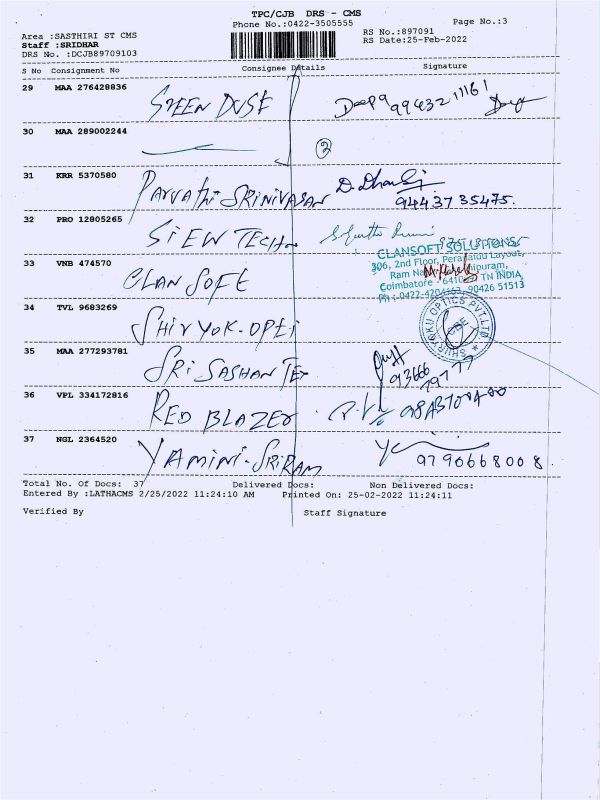 TPC/CJB DRS - CMS
Phone No.:0422-3505555
Page No.:3
Area :SASTHIRI ST CMS
RS No.:897091
Staff :SRIDHAR
RS Date:25-Feb-2022
DRS No. :DCJB89709103
S No Consignment No Consignee Details Signature
29 MAA 276428836 Deepa 9943211161
30 MAA 289002244 2
31 KRR 5370580 PARVATHI SRINIVASAN 9443735475.
32 PRO 12805265 SIEW TECH
33 VNB 474570 CLAN SOFT
CLANSOFT SOLUTIONS
306, 2nd Floor, Perumal Layout,
Ram Nagar
Coimbatore - TN INDIA
Ph :-0422- 90426 51513
34 TVL 9683269
OPTICS PVT.LTD
CBE
35 MAA 277293781 SRI SASHAN TEX 93666
79777
36 VPL 334172816 RED BLAZER
37 NGL 2364520 YAMINI-SRIRAM 9790668008.
Total No. Of Docs: 37 Delivered Docs: Non Delivered Docs:
Entered By :LATHACMS 2/25/2022 11:24:10 AM Printed On: 25-02-2022 11:24:11
Verified By Staff Signature